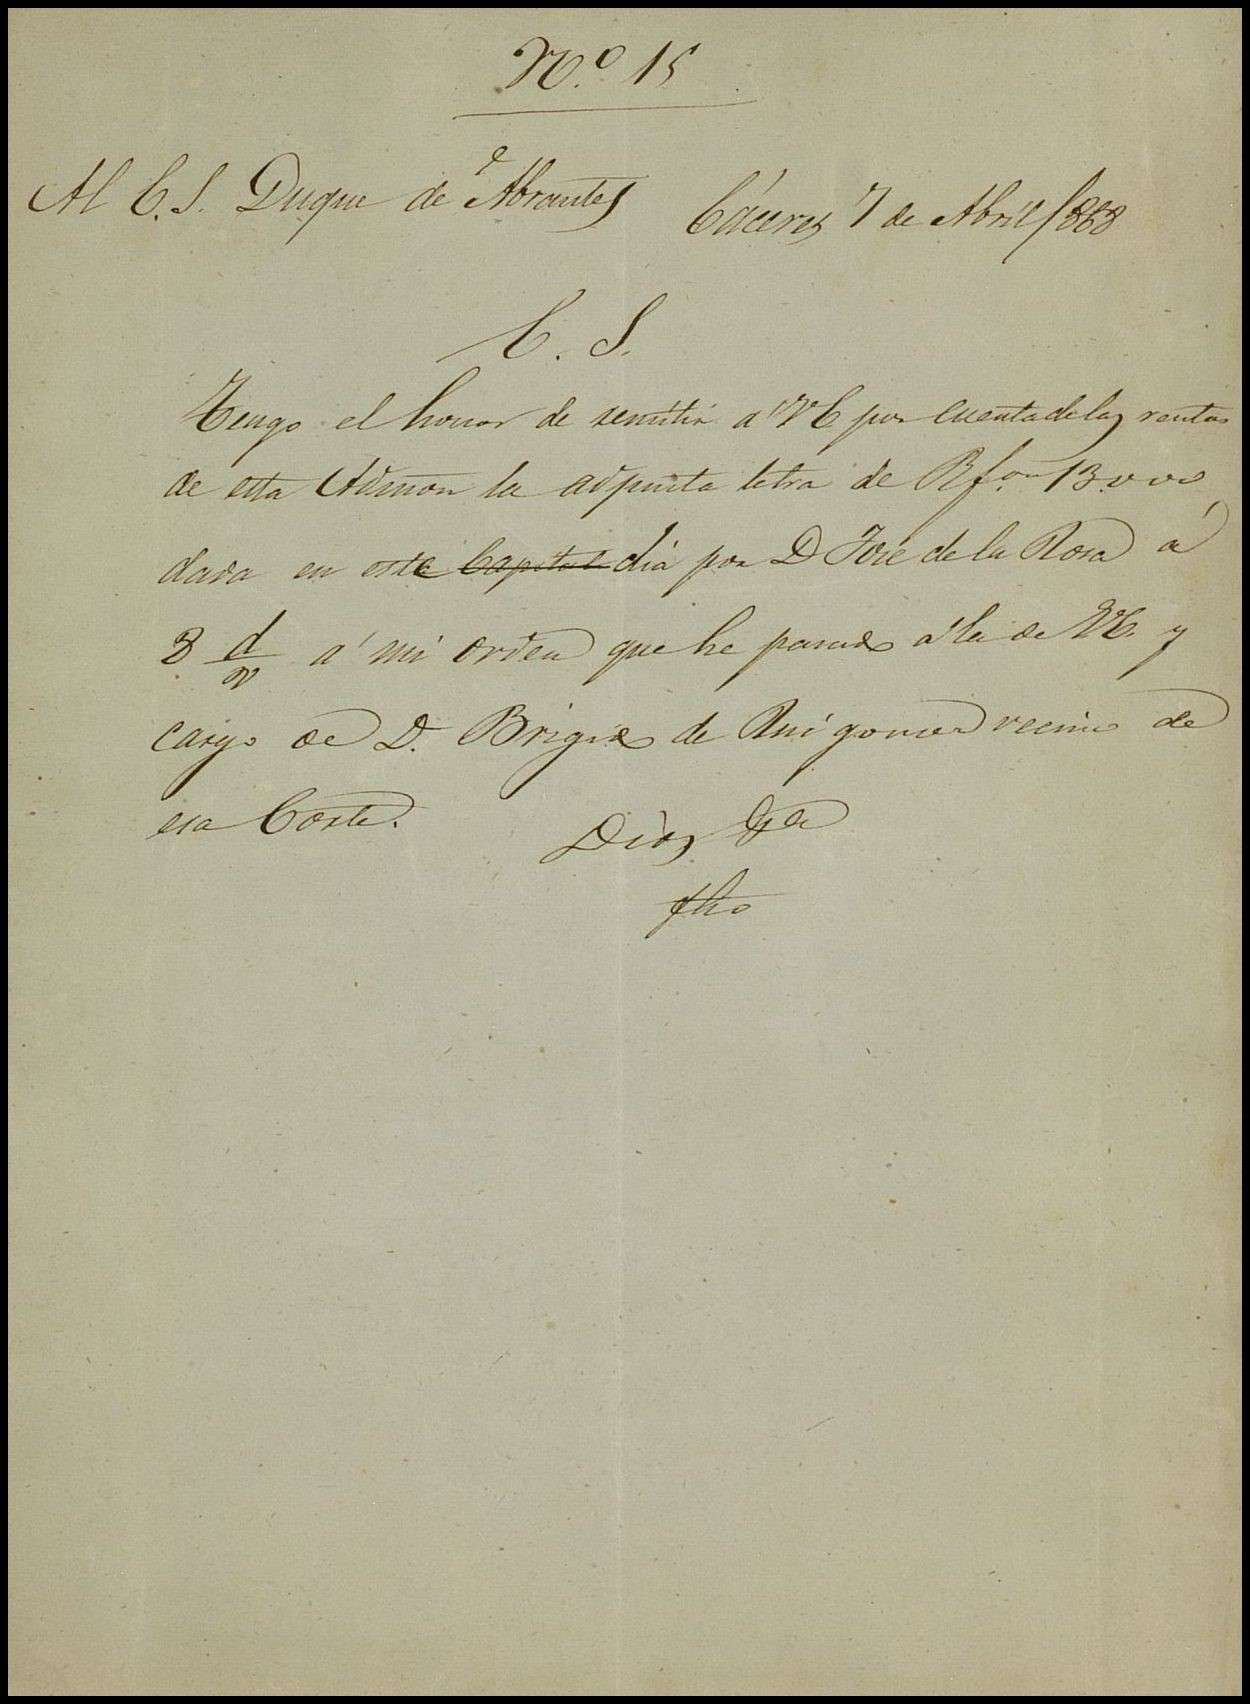 Nº. 15
Al E. S. Duque de Abrantes
Cáceres 7 de Abril/868
E. S.
Tengo el honor de remitir á VE por cuenta de las rentas
de esta Admon la adjunta letra de R 13.000
dada en este Capital dia por D José de la Rosa á
8 d/v á mi orden que he pasado á la de VE. y
cargo de D. Brigido de Ruigomez vecino de
esa Corte.
Dios